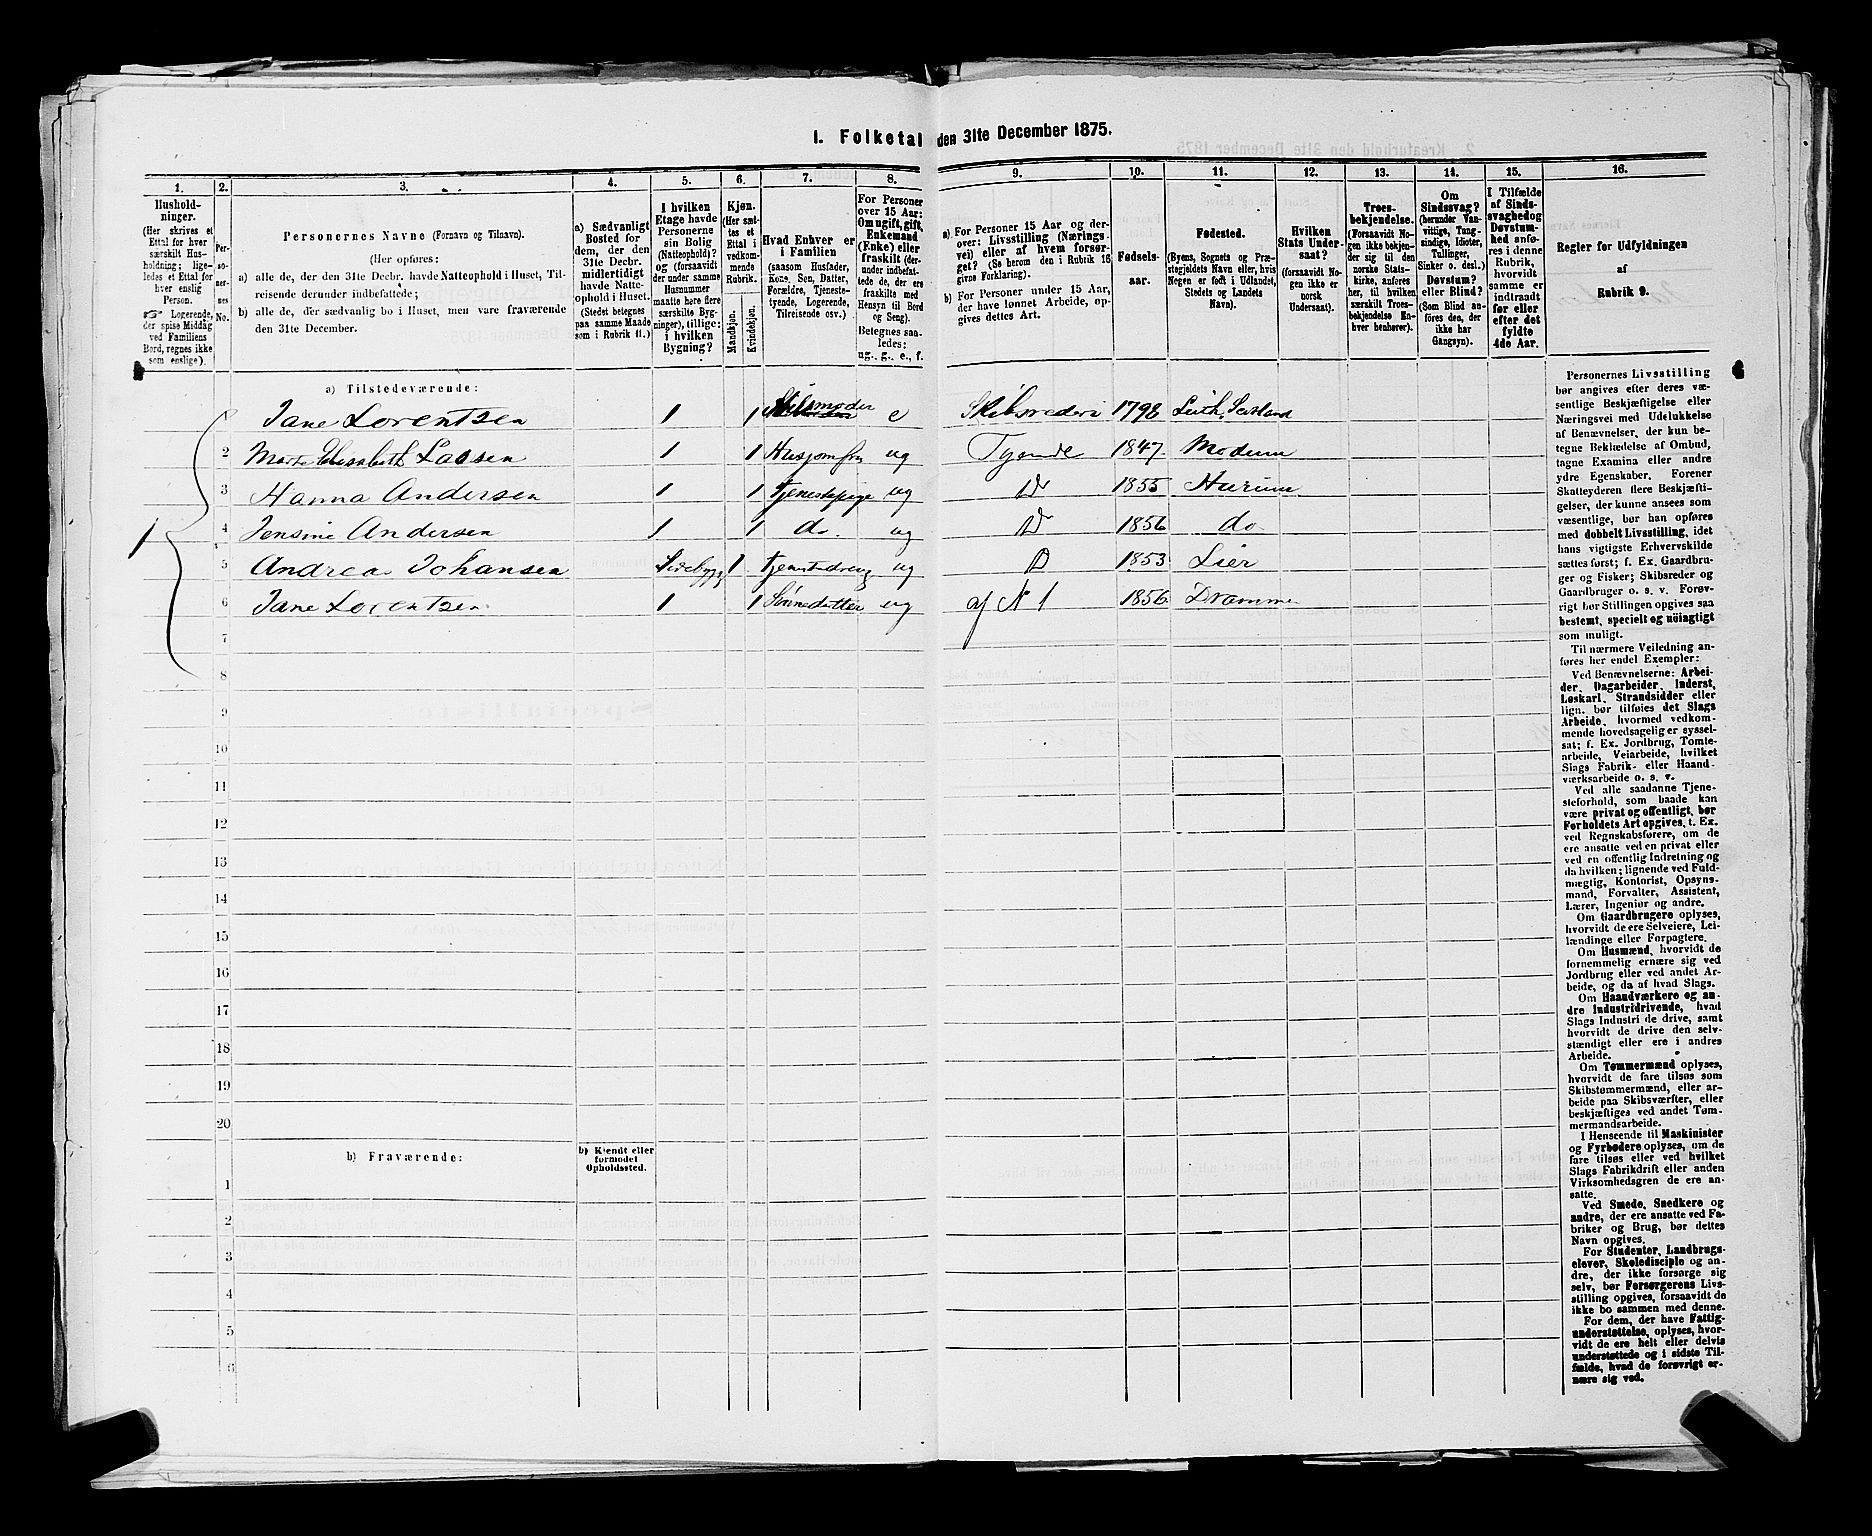 I. Folketal den 31te December 1875.
1. 2. 3. 4. 5. 6. 7. 8. 9. 10. 11. 12. 13. 14. 15. 16.
Hushold-
ninger.
(Her skrives et
Ettal for hver
særskilt Hus-
holdning; lige-
ledes et Ettal for
hver enslig
Person.
☞ Logerende,
der spise Middag
ved Familiens
Bord, regnes ikke
som enslige).
Per-
so-
ner-
nes
No.
Personernes Navne (Fornavn og Tilnavn).
(Her opføres:
a) alle de, der den 31te Decbr. havde Natteophold i Huset, Til-
reisende derunder indbefattede;
b) alle de, der sædvanlig bo i Huset, men vare fraværende
den 31te December.
a) Sædvanligt
Bosted for
dem, der den
31te Decbr.
midlertidigt
havde Natte-
ophold i Huset.
(Stedet betegnes
paa samme Maade
som i Rubrik 11.)
I hvilken
Etage havde
Personerne
sin Bolig
(Natteophold)?
og (forsaavidt
der under samme
Husnummer
maatte høre flere
særskilte Byg-
ninger), tillige:
i hvilken
Bygning?
Kjøn.
(Her sæt-
tes et
Ettal i
vedkom-
mende
Rubrik.
Mandkjøn.
Kvindekjøn.
Hvad Enhver er
i Familien
(saasom Husfader,
Kone, Søn, Datter,
Forældre, Tjeneste-
tyende, Logerende,
Tilreisende osv.)
For Personer
over 15 Aar:
Om ugift, gift,
Enkemand
(Enke) eller
fraskilt (der-
under indbefat-
tede de, der ere
fraskilte med
Hensyn til Bord
og Seng).
Betegnes saa-
ledes:
ug., g., e., f.
a) For Personer 15 Aar og der-
over: Livsstilling (Nærings-
vei) eller af hvem forsør-
get? (Se herom den i Rubrik 16
givne Forklaring).
b) For Personer under 15 Aar,
der have lønnet Arbeide, op-
gives dettes Art.
Fødsels-
aar.
Fødested.
(Byens, Sognets og Præ-
stegjeldets Navn eller, hvis
Nogen er født i Udlandet,
Stedets og Landets
Navn).
Hvilken
Stats Under-
saat?
(forsaavidt No-
gen ikke er
norsk
Undersaat).
Troes-
bekjendelse.
(Forsaavidt No-
gen ikke bekjen-
der sig til den
norske Stats-
kirke, anføres
her, til hvilken
særskilt Troes-
bekjendelse En-
hver henhører).
Om
Sindssvag?
(herunder Van-
vittige, Tung-
sindige, Idioter,
Tullinger,
Sinker o. desl.)
Døvstum?
eller Blind?
(Som Blind an-
føres den, der
ikke har
Gangsyn).
I Tilfælde
af Sinds-
svaghed og
Døvstum-
hed anfø-
res i denne
Rubrik,
hvorvidt
samme er
indtraadt
før eller
efter det
fyldte
4de Aar.
Regler for Udfyldningen
af
Rubrik 9.
a) Tilstedeværende:
Jane Lorentzen 1 1 moder e Skibsrederi 1798 Leith, Scotland
2 Marte Elisabeth Larsen 1 1 Husjomfru ug Tyende 1847 Modum
3 Hanna Andersen 1 1 Tjenestepige ug D 1855 Hurum
4 Jensine Andersen 1 1 do. ug D 1856 do
1
5 Andrea Johansen Sidebygg 1 Tjenestedreng ug D 1853 Lier
6 Jane Lorentzen 1 1 Sønnedatter ug af N 1 1856 Dramme
7
8
9
10
11
12
13
14
15
16
17
18
19
20
b) Fraværende:
b) Kjendt eller
formodet
Opholdssted.
1
2
3
4
5
6
Personernes Livsstilling
bør angives efter deres væ-
sentlige Beskjæftigelse eller
Næringsvei med Udelukkelse
af Benævnelser, der kun be-
tegne Beklædelse af Ombud,
tagne Examina eller andre
ydre Egenskaber. Forener
Skatteyderen flere Beskjæfti-
gelser, der kunne ansees som
væsentlige, bør han opføres
med dobbelt Livsstilling, idet
hans vigtigste Erhvervskilde
sættes først; f. Ex. Gaardbru-
ger og Fisker; Skibsreder og
Gaardbruger o. s. v. Forøv-
rigt bør Stillingen opgives saa
bestemt, specielt og nöiagtigt
som muligt.
Til nærmere Veiledning an-
føres her endel Exempler:
Ved Benævnelserne: Arbei-
der, Dagarbeider, Inderst,
Løskarl, Strandsidder eller
lign. bør tilføies det Slags
Arbeide, hvormed vedkom-
mende hovedsagelig er syssel-
sat; f. Ex. Jordbrug, Tomte-
arbeide, Veiarbeide, hvilket
Slags Fabrik- eller Haand-
værksarbeide o. s. v.
Ved alle saadanne Tjene-
steforhold, som baade kan
være privat og offentligt, bør
Forholdets Art opgives, t. Ex.
ved Regnskabsførere, om de
ere ansatte ved en privat eller
ved en offentlig Indretning og
da hvilken; lignende ved Fuld-
mægtig, Kontorist, Opsyns-
mand, Forvalter, Assistent,
Lærer, Ingeniør og andre.
Om Gaardbrugere oplyses,
hvorvidt de ere Selveiere, Lei-
lændinge eller Forpagtere.
Om Husmænd, hvorvidt de
fornemmelig ernære sig ved
Jordbrug eller ved andet Ar-
beide, og da af hvad Slags.
Om Haandværkere og an-
dre Industridrivende, hvad
Slags Industri de drive, samt
hvorvidt de drive den selv-
stændigt eller ere i andres
Arbeide.
Om Tømmermænd oplyses,
hvorvidt de fare tilsøs som
Skibstømmermænd, eller ar-
beide paa Skibsværfter, eller
beskjæftiges ved andet Tøm-
mermandsarbeide.
I Henseende til Maskinister
og Fyrbødere oplyses, om de
fare tilsøs eller ved hvilket
Slags Fabrikdrift eller anden
Virksomhedsgren de ere an-
satte.
Ved Smede, Snedkere og
andre, der ere ansatte ved Fa-
briker og Brug, bør dettes
Navn opgives.
For Studenter, Landbrugs-
elever, Skoledisciple og an-
dre, der ikke forsørge sig
selv, bør Forsørgerens Livs-
stilling opgives, forsaavidt de
ikke bo sammen med denne.
For dem, der have Fattig-
understøttelse, oplyses, hvor-
vidt de ere helt eller delvis
understøttede og i sidste Til-
fælde, hvad de forøvrigt er-
nære sig ved.